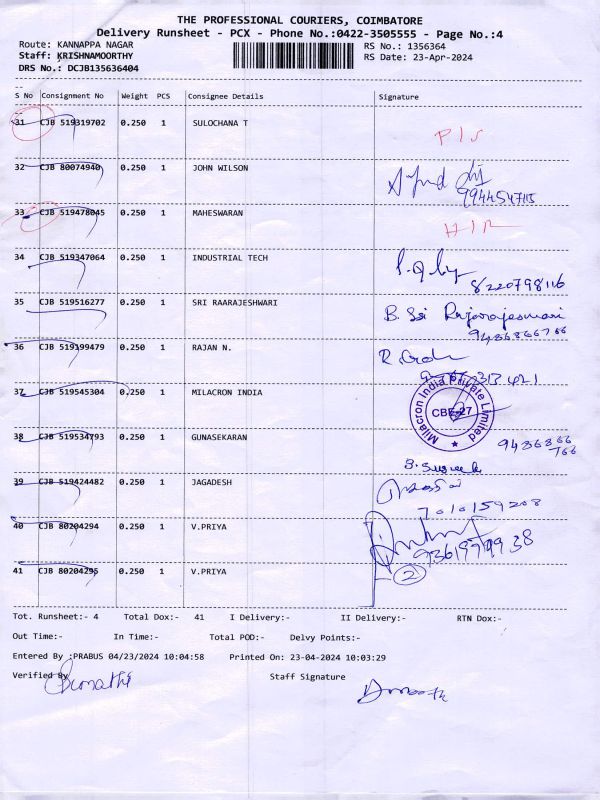 THE PROFESSIONAL COURIERS, COIMBATORE
Delivery Runsheet - PCX - Phone No.:0422-3505555 - Page No.:4
Route: KANNAPPA NAGAR RS No.: 1356364
Staff: KRISHNAMOORTHY RS Date: 23-Apr-2024
DRS No.: DCJB135636404
S No Consignment No Weight PCS Consignee Details Signature
31 CJB 519319702 0.250 1 SULOCHANA T
32 CJB 80074940 0.250 1 JOHN WILSON
33 CJB 519478045 0.250 1 MAHESWARAN
34 CJB 519347064 0.250 1 INDUSTRIAL TECH
8220798116
35 CJB 519516277 0.250 1 SRI RAARAJESHWARI B. Sri Rajarajeswari
9486866766
36 CJB 519199479 0.250 1 RAJAN N.
37 CJB 519545304 0.250 1 MILACRON INDIA Milacron India Private Limited
CBE-27
38 CJB 519534793 0.250 1 GUNASEKARAN 9486866
766
39 CJB 519424482 0.250 1 JAGADESH
7010159208
40 CJB 80204294 0.250 1 V.PRIYA
2
41 CJB 80204295 0.250 1 V.PRIYA
Tot. Runsheet:- 4 Total Dox:- 41 I Delivery:- II Delivery:- RTN Dox:-
Out Time:- In Time:- Total POD:- Delvy Points:-
Entered By :PRABUS 04/23/2024 10:04:58 Printed On: 23-04-2024 10:03:29
Verified By Staff Signature